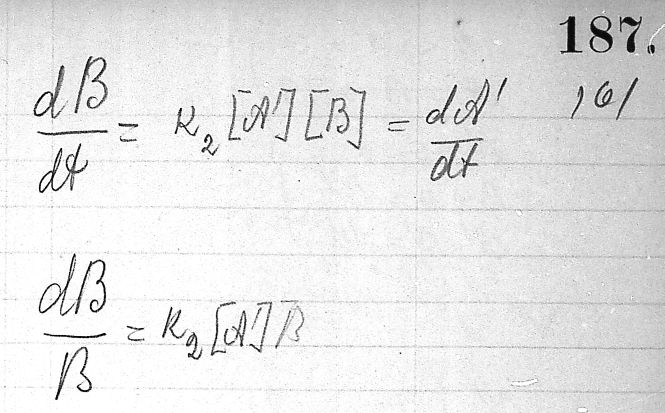 187.
dB/dt = K₂ [A'] [B] = dA'/dt )6/
dB/B = K₂ [A'] B